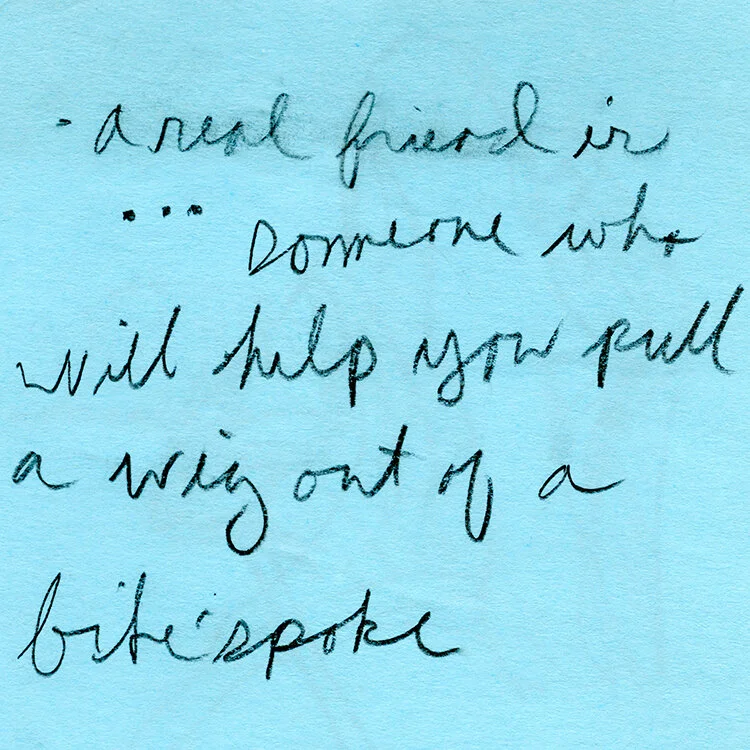 - a real friend is
... someone who
will help you pull
a wig out of a
bike spoke